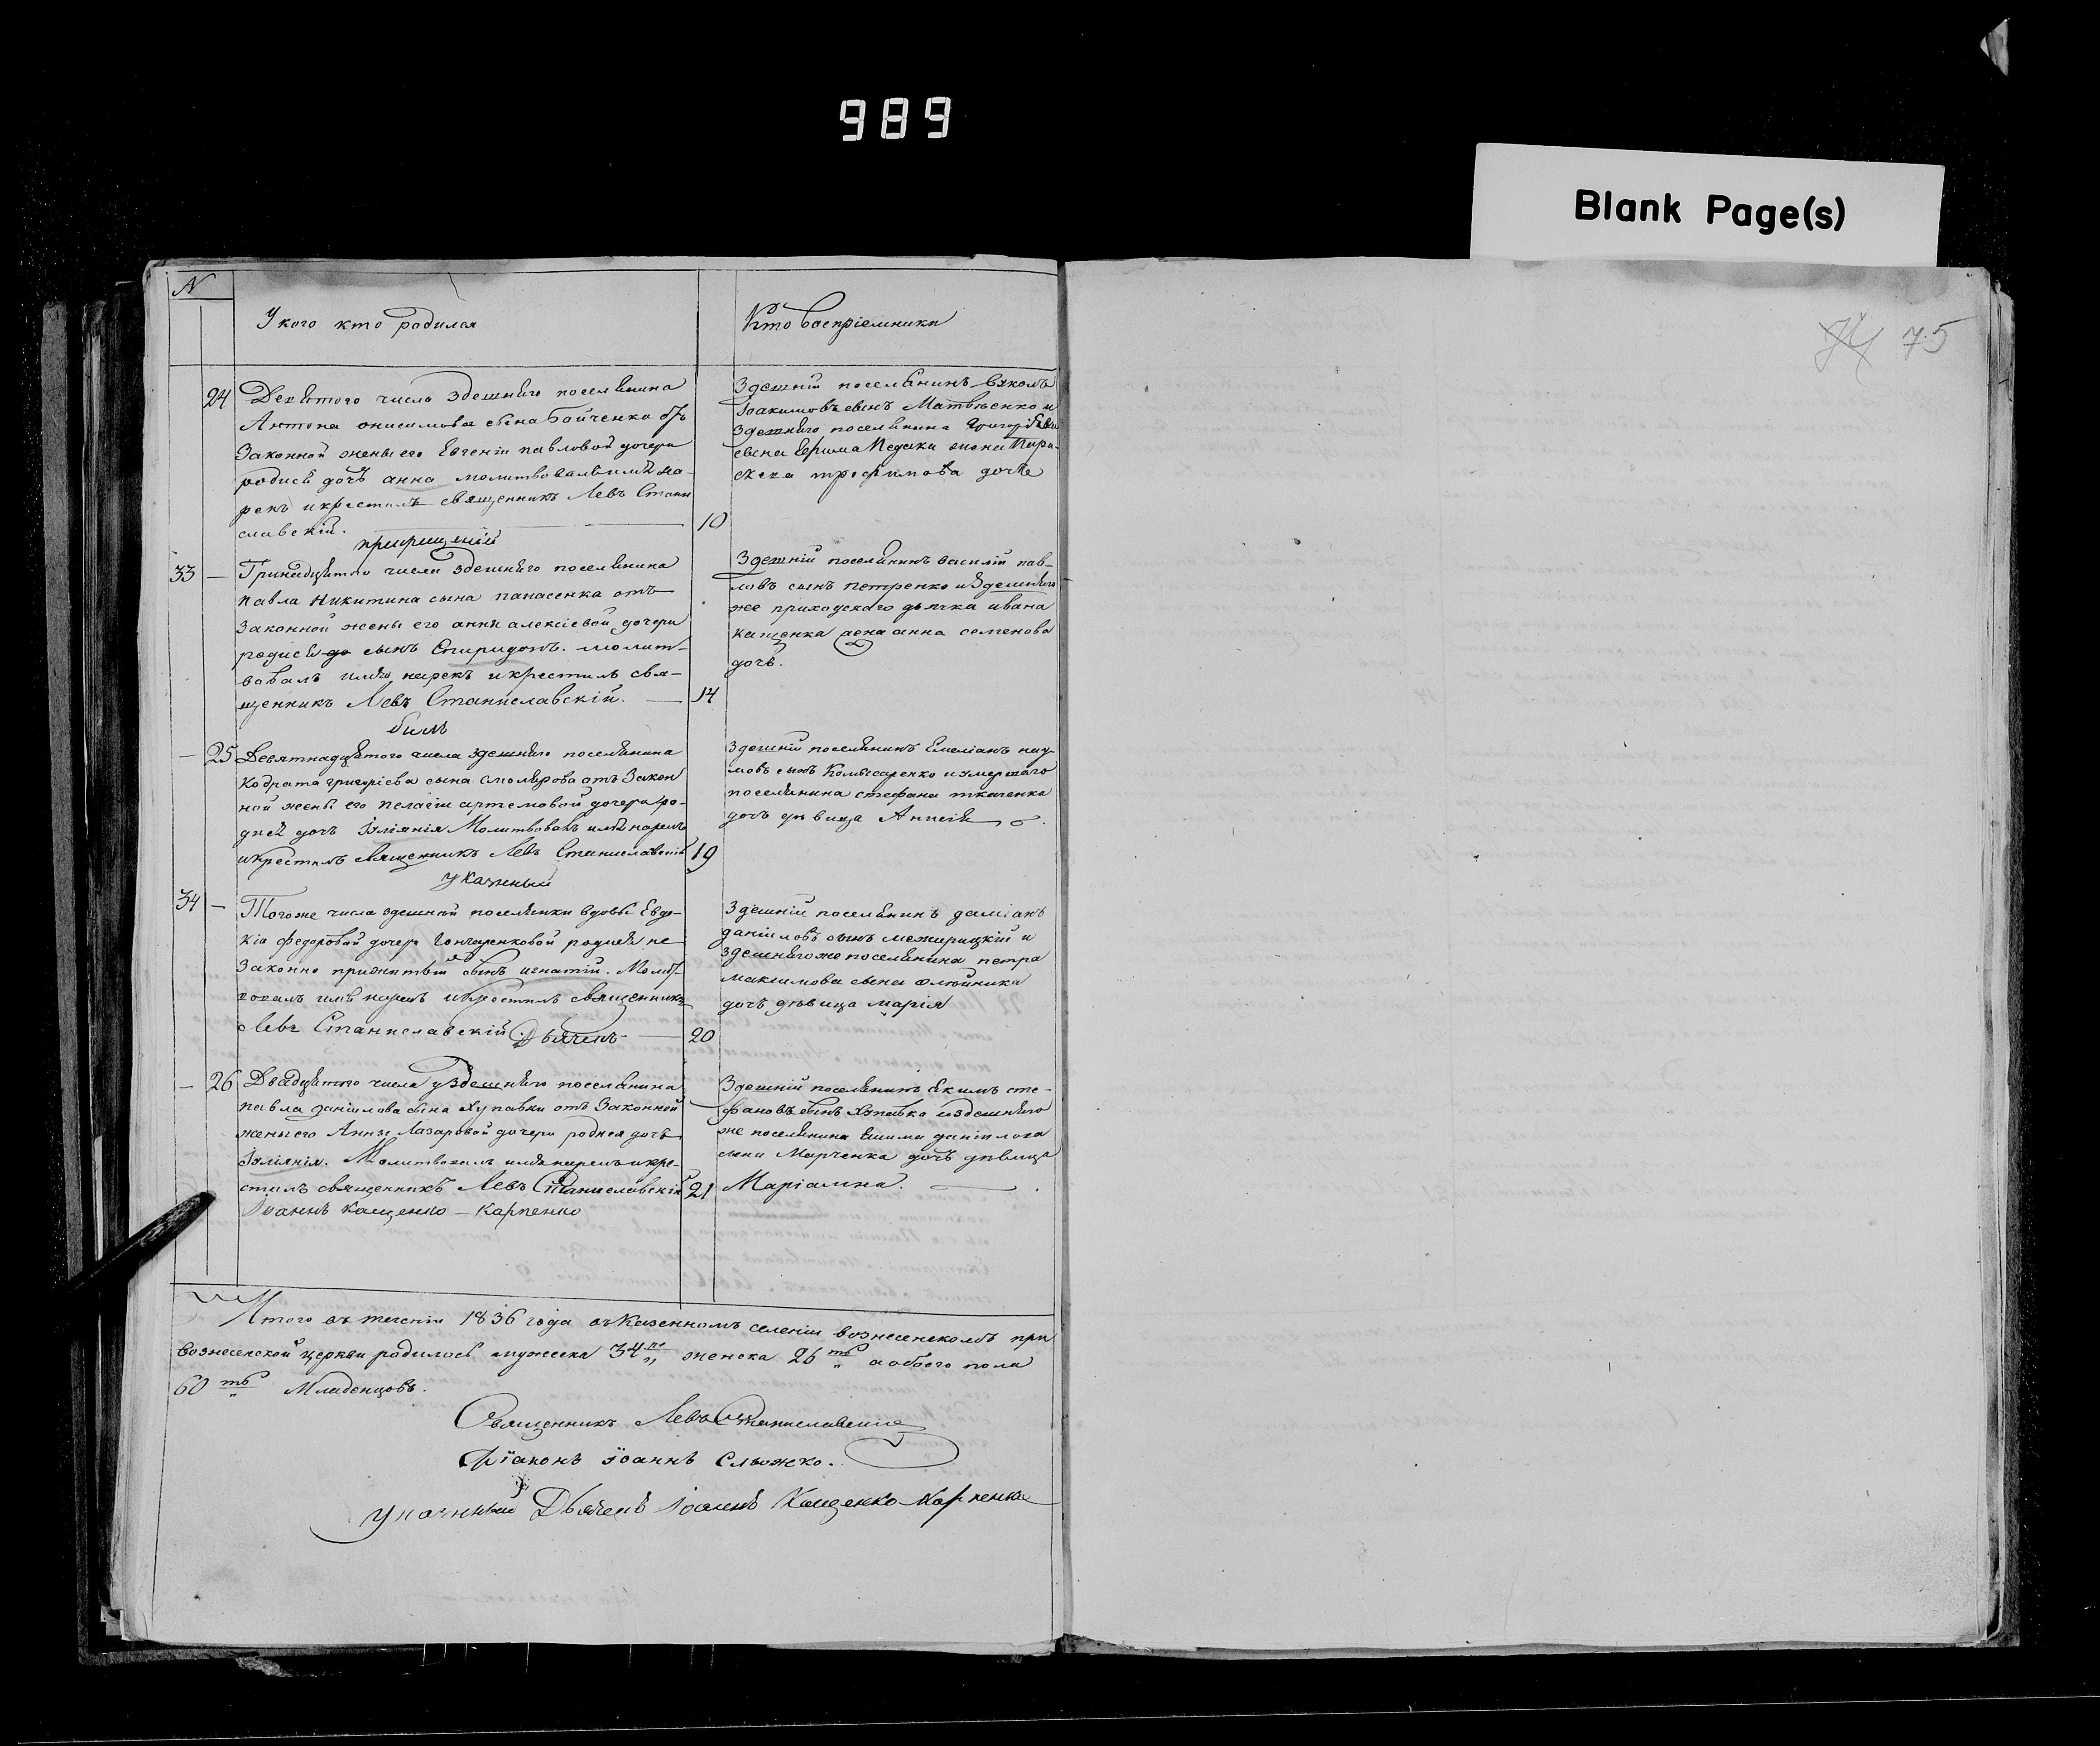 989
Blank Page(s)
75
N
У кого кто родился
Кто воспріемники
24
Девятого числа здешняго поселянина
Антона онисимова сына Бойченка отъ
Законной жены его Евгеніи павловой дочери
родися дочь анна молитвовалъ имя на-
рекъ и крестилъ священникъ Левъ Стани
славскій.
10
Здешній поселянинъ
Іоакимовъ сынъ Матвѣенко и
здешняго поселянина
сына жена Пара-
скева трофимова дочь
33 —
Тринадцатого числа здешняго поселянина
павла Никитина сына панасенка отъ
Законной жены его анны алексіевой дочери
родися сынъ Спиридонъ. молит-
вовалъ имя нарекъ и крестилъ свя-
щенникъ Левъ Станиславскій. —
14
Здешній поселянинъ василій пав-
ловъ сынъ петренко и здешняго
же приходского дьячка ивана
кащенка жена анна семенова
дочь.
— 25
Девятнадцатого числа здешняго поселянина
Кодрата григоріева сына столярова отъ Закон
ной жены его пелагіи артемовой дочери ро-
дися дочь Іуліянія Молитвовалъ имя нарекъ
и крестилъ священникъ Левъ Станиславскій
19
Здешній поселянинъ Емеліанъ нау-
мовъ сынъ Комисаренко и умершаго
поселянина стефана ткаченка
дочь дѣвица Аннсія
указный
34 —
Того же числа здешней поселянки вдовы Евдо-
кіи федоровой дочери Гончаренковой родися не
законно прижитый сынъ игнатій. Молит-
вовалъ имя нарекъ и крестилъ священникъ
Левъ Станиславскій Дьячекъ —
20
Здешній поселянинъ даміанъ
даніиловъ сынъ межирицкій и
здешняго же поселянина петра
максимова сына олѣйника
дочь дѣвица марія
— 26
Двадцатого числа у здешняго поселянина
павла даніилова сына Хупавки отъ Законной
жены его Анны Лазаровой дочери родися дочь
Іуліянія. Молитвовалъ имя нарекъ и кре-
стилъ священникъ Левъ Станиславскій
Іоаннъ Кащенко — Карпенко
21
Здешній поселянинъ Екимъ сте-
фановъ сынъ Хупавка и здешняго
же поселянина даніилова
сына Марченка дочь дѣвица
Маріамна. —
Итого въ теченіи 1836 года въ Казенномъ селеніи вознесенскомъ при
вознесенской церкви родилось мужеска 34 женска 26 а обоего пола
60 Младенцовъ.
Священникъ Левъ Станиславскій
Діаконъ Іоаннъ Сльожко.
указный Дьячекъ Іоаннъ Кащенко Карпенко